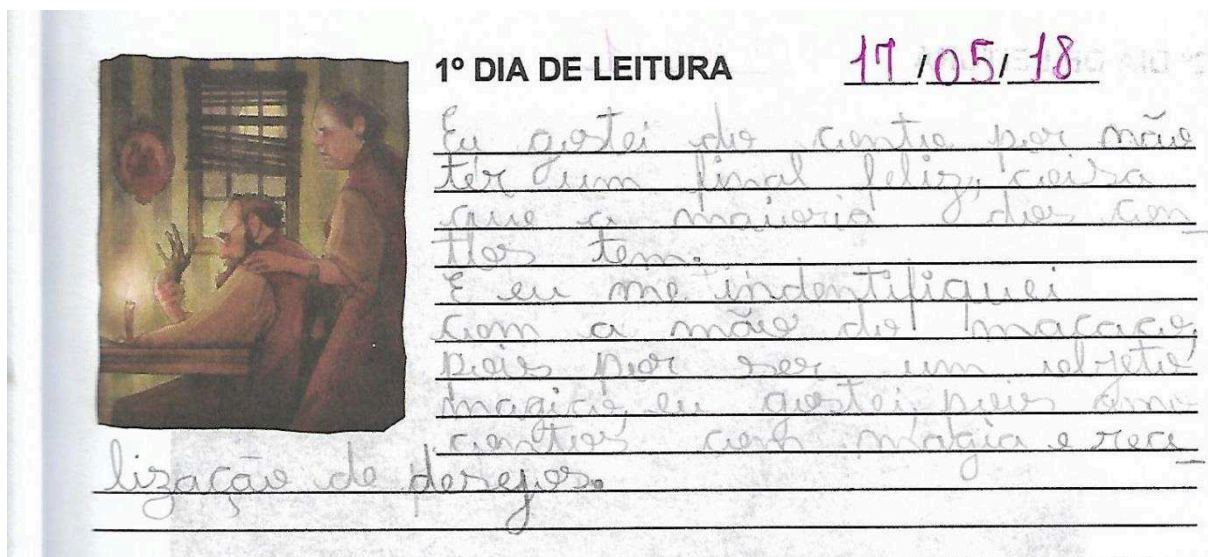 1º DIA DE LEITURA 17/05/18
Eu gostei do conto por não
ter um final feliz, coisa
que a maioria dos con_
tos tem.
E eu me indentifiquei
com a mão do macaco,
pois por ser um objeto
magico, eu gostei, pois amo
contos com magia e rea_
lização de desejos.